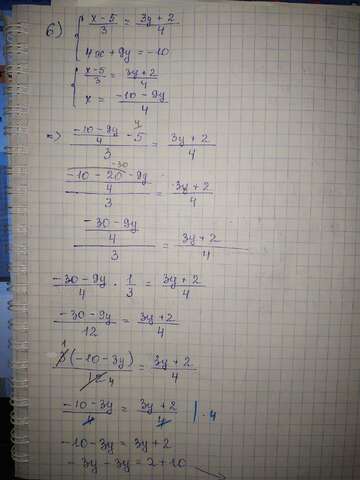 б) { (x-5)/3 = (3y+2)/4
4x + 9y = -10
{ (x-5)/3 = (3y+2)/4
x = (-10-9y)/4
=> ((-10-9y)/4 - 5)/3 = (3y+2)/4
4
-30
((-10-20-9y)/4)/3 = (3y+2)/4
((-30-9y)/4)/3 = (3y+2)/4
(-30-9y)/4 · 1/3 = (3y+2)/4
(-30-9y)/12 = (3y+2)/4
1
3(-10-3y)/12 4 = (3y+2)/4
(-10-3y)/4 = (3y+2)/4 | · 4
-10-3y = 3y+2
-3y-3y = 2+10